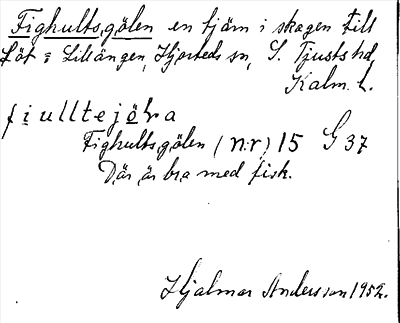 Fighultsgölen en tjärn i skogen till
Löt o Lillängen, Hjorteds sn, S. Tjusts hd,
Kalm. l.
fiulltejöḷra
Fighultsgölen (nr) 15 G 37
Där är bra med fisk.
Hjalmar Andersson 1952.